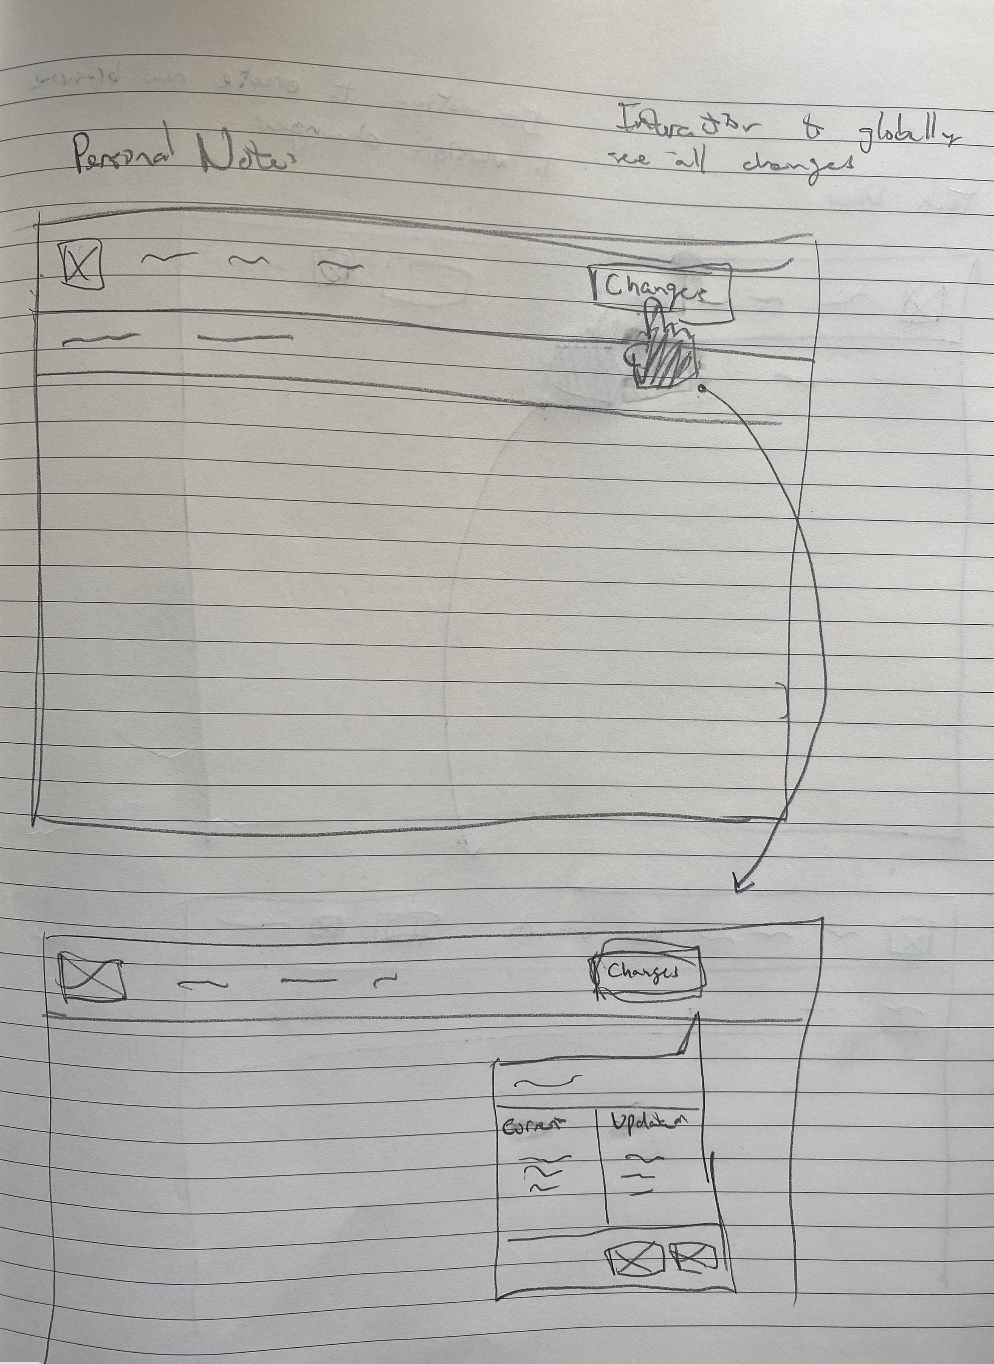 Personal Notes
Interaction to globally
see all changes
Changes
Changes
Current